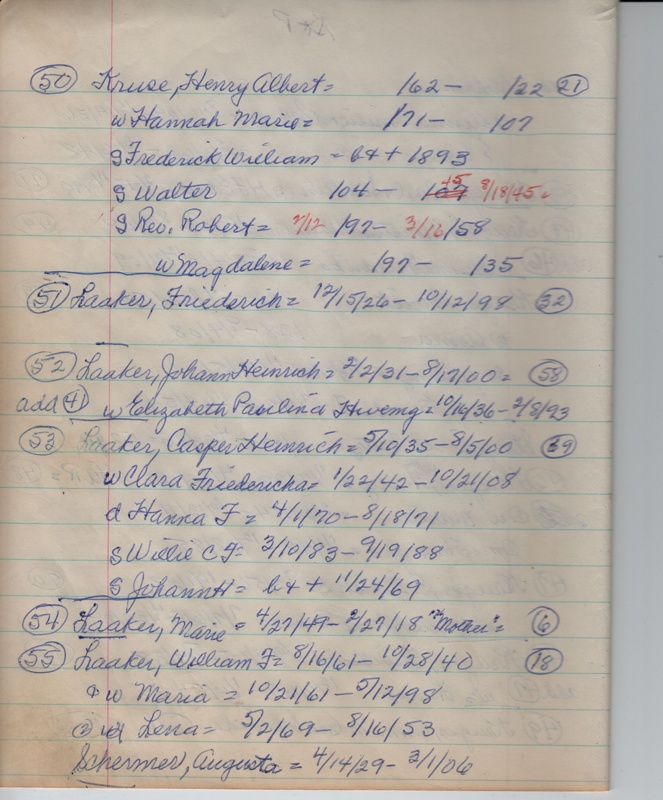 50 Kruse, Henry Albert = /62 - /22 21
w Hannah Marie = /71 - 107
S Frederick William - b+ + 1893
S Walter 104 - 45 8/18/45
S Rev. Robert = 2/12 /97 - 3/16/58
w Magdalene = /97 - /35
51 Laaker, Friederich = 12/15/26 - 10/12/98 32
52 Laaker, Johann Heinrich = 2/2/31 - 8/17/00 = 58
add 41 w Elizabeth Paulina = 10/16/36 - 2/8/93
53 Laaker, Casper Heinrich = 5/10/35 - 8/5/00 39
w Clara Friedericha = 1/22/42 - 10/21/08
d Hanna F = 4/1/70 - 8/18/71
S Willie C F = 3/10/83 - 9/19/88
S Johann H = b+ + 11/24/69
54 Laaker, Marie = 4/27/49 - 2/27/18 "Mother" = 6
55 Laaker, William F = 8/16/61 - 10/28/40 18
w Maria = 10/21/61 - 5/12/98
2 Lena = 5/2/69 - 8/16/53
Schermer, Augusta = 4/14/29 - 3/1/06